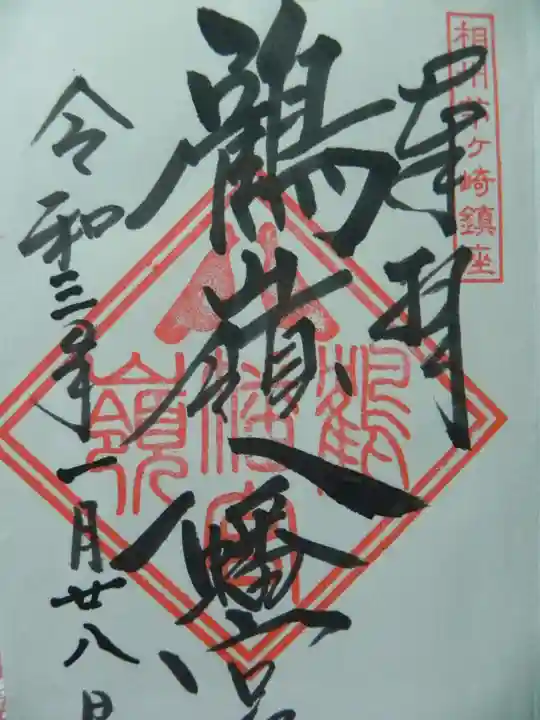 相州茅ヶ崎鎮座
奉拝
鶴嶺八幡宮
令和三年一月廿八日
鶴
嶺